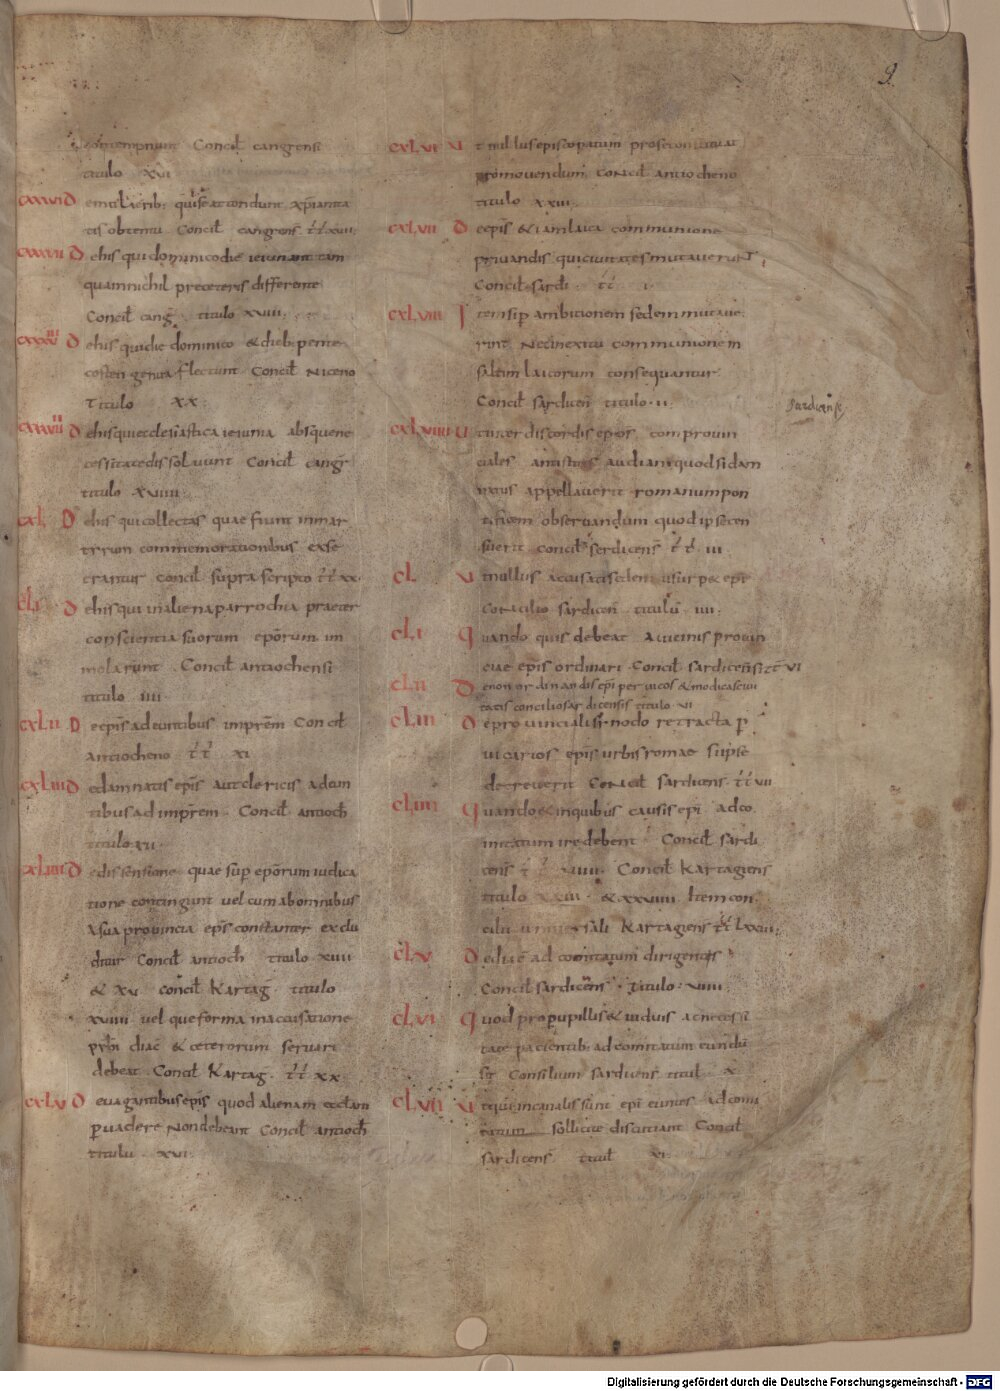 9
contempnunt Concil cangrensi
titulo xvi
cxxxvi De mulierib; quae se attondunt xpianita
tis obtentu Concil cangrens tt xvii
cxxxvii De his qui dominico die ieiunant tam
quam nichil pre ceteris differente
Concil cang titulo xviii
cxxxviii De his qui die dominico & dieb; pente
costen genua flectunt Concil Niceno
Titulo xx
cxxxviiii De his qui ecclesiastica ieiunia absque ne
cessitate dissoluunt Concil cangr
titulo xviiii
cxl De his qui collectas quae fiunt in mar
tyrum commemorationibus exse
crantur Concil supra scripto tt xx
cxli De his qui in aliena parrochia praeter
conscientia suorum eporum im
molarunt Concil antiochensi
titulo iiii
cxlii De epis adeuntibus imprem Concil
antiocheno tt xi
cxliii De damnatis epis aut clericis adeun
tibus ad imprem Concil antioch
titulo xii
cxliiii De dissensione quae sup eporum iudica
tione contingunt vel cum ab omnibus
a sua provincia eps constanter exclu
ditur Concil antioch titulo xiiii
& xv Concil Kartag titulo
xviiii vel que forma in accusatione
prbi diac & ceterorum servari
debeat Concil Kartag tt xx
cxlv De vagantibus epis quod alienam ecclam
pvadere non debeant Concil antioch
titulu xvi
cxlvi Ut nullus episcopatum pro se constituat
promovendum Concil antiocheno
titulo xxiii
cxlvii De epis & iam laica communione
privandis qui civitates mutaverint
Concil sardi tt i
cxlviii Item si p ambitionem sedem mutave
rint nec in exitu communionem
saltem laicorum consequantur
Concil sardicen titulo ii
Sardicense
cxlviiii Ut inter discordis epos comprovin
ciales antistites audiant quod si dam
natus appellaverit romanum pon
tificem observandum quod ipse cen
suerit Concil serdicens tt iii
cl Ut nullus accusati sedem usurpet epi
Concilio sardicen titulu iiii
cli Quando quis debeat a vicinis provin
ciae epis ordinari Concil sardicensi tt vi
clii De non ordinandis epi per vicos & modicas civi
tates concilio sardicensis titulo vi
cliii De provinciali synodo retracta p
vicarios epis urbis romae si ipse
decreverit Concil sardicens tt vii
cliiii Quando & in quibus causis epi ad co
mitatum ire debent Concil sardi
cens tt viiii Concil Kartagens
titulo xxiii & xxxviiii Item con
cilii universali Kartagens tt lxxii
clv De diac ad comitatum dirigentis
Concil sardicens titulo viiii
clvi Quod pro pupillis & viduis ac necessi
tate pacientib; ad comitatum eundu
sit Consilium sardicens titul x
clvii Ut qui in canalis sunt epi euntes ad comi
tatum sollicite discutiant Concil
sardicens titul xi
Digitalisierung gefördert durch die Deutsche Forschungsgemeinschaft - DFG